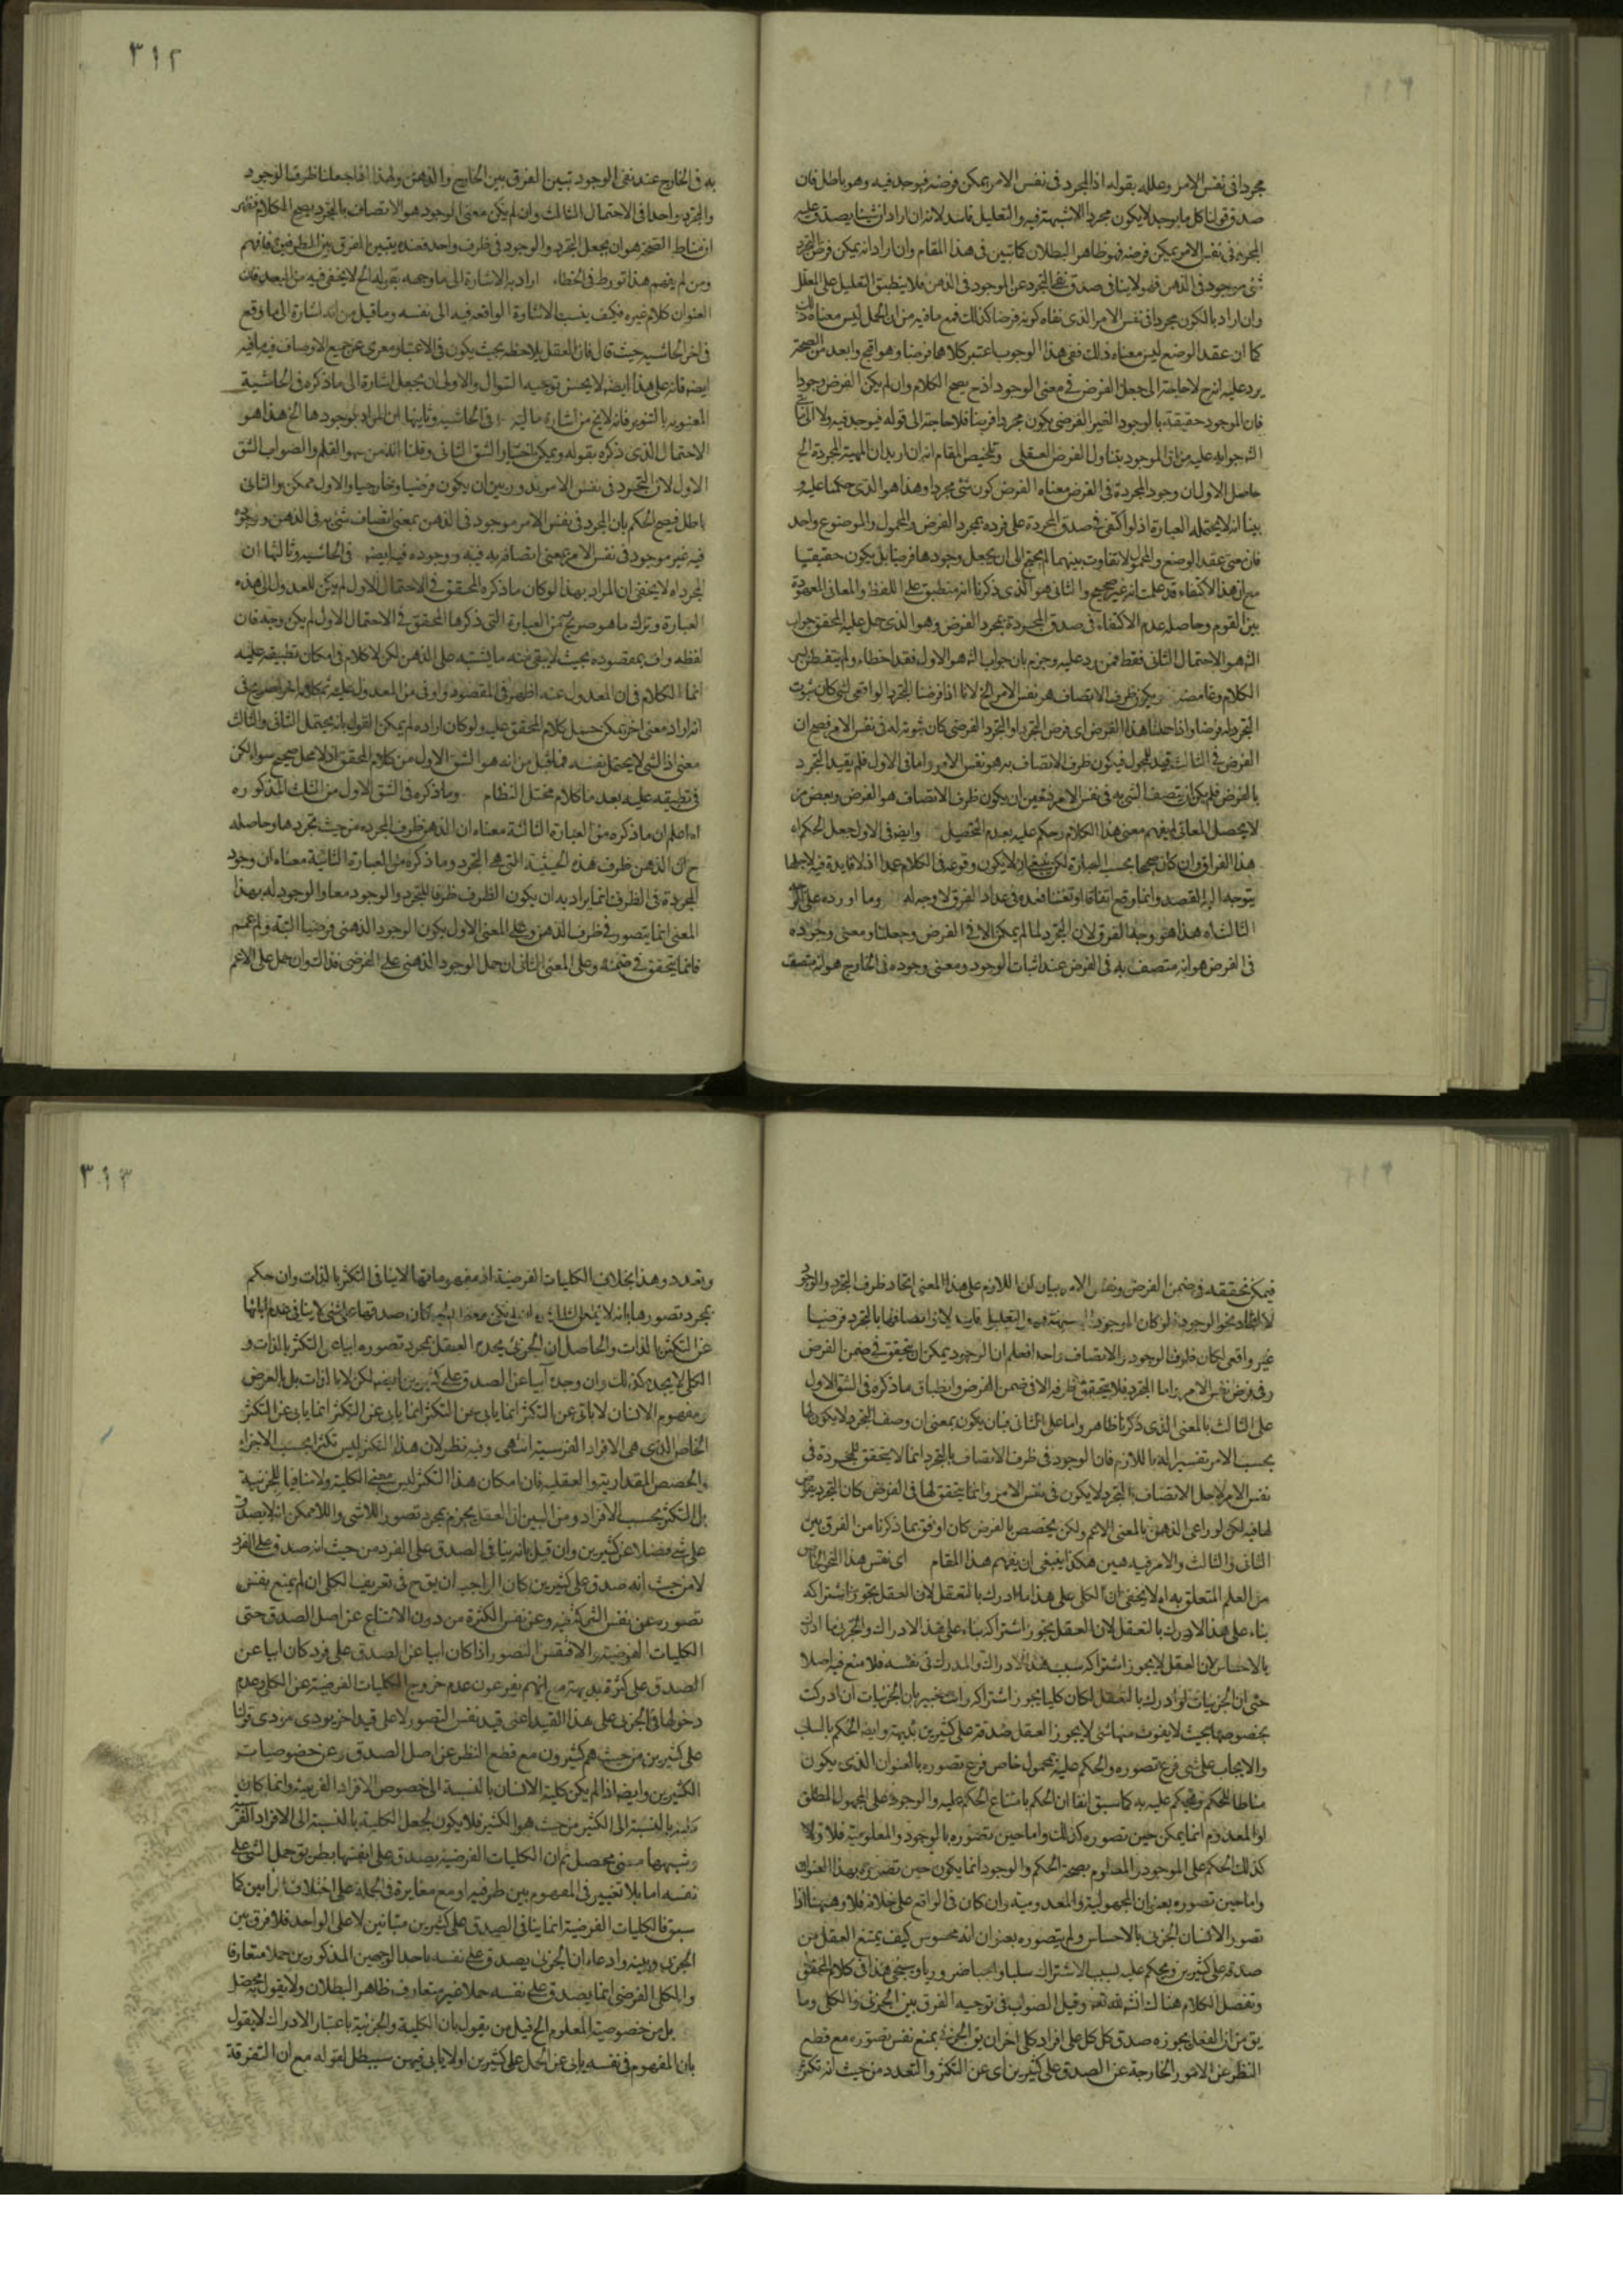 ٣١٢
مجردا فى نفس الامر وعلله بقوله اذ المجرد فى نفس الامر يمكن فرضه فيوجد فيه وهو باطل فان
صدق قولنا كل ما يوجد لا يكون مجردا لا شبهة فيه والتعليل فاسد لانه ان اراد ان شيئا يصدق عليه
المجرد فى نفس الامر يمكن فرضه فهو ظاهر البطلان كما تبين فى هذا المقام وان اراد انه يمكن فرض المجرد
شئ موجود فى الذهن فهو لا ينافى صدق نفى المجرد عن الموجود فى الذهن فلا ينطبق التعليل على المعلل
وان اراد بالكون مجردا فى نفس الامر الذى نفاه كونه فرضا كذلك فمع ما فيه من ان الحمل ليس معناه ذلك
كما ان عقد الوضع ليس معناه ذلك ففى هذا الوجوب اعتبر كلاهما فرضا وهو اقبح وابعد من الصحة
يرد عليه انه ح لا حاجة الى جعل الفرض فى معنى الوجود اذ ح يصح الكلام وان لم يكن الفرض وجودا
فان الموجود حقيقة بالوجود الغير الفرضى يكون مجردا فرضا فلا حاجة الى قوله فيوجد فيه ولا الى
جوابه عليه من ان الموجود يتناول الفرض العقلى وتلخيص المقام انه ان اريد ان المهية المجردة الخ
حاصل الاول ان وجود المجردة فى الفرض معناه الفرض كون شئ مجردا وهذا هو الذى حكمنا عليه
بينا انه لا يحتمله العبارة اذ لو اكتفى فى صدق المجردة على فرده بمجرد الفرض والمحمول والموضوع واحد
فان معنى عقد الوضع والمحمول لا تفاوت بينهما لم يحتج الى ان يجعل وجودها فرضا بل يكون حقيقيا
مع ان هذا الاكتفاء قد علمت انه غير صحيح والثانى هو الذى ذكرنا انه منطبق على اللفظ والمعانى المعهودة
بين القوم وحاصله عدم الاكتفاء فى صدق المجردة بمجرد الفرض وهو الذى حمل عليه المحقق جواب
هو الاحتمال الثانى فقط فمن رد عليه وجزم بان جواب هو الاول فقد اخطاء ولم يتفطن
الكلام ويكون ظرف الاتصاف هو نفس الامر الخ لانا اذا فرضنا المجرد الواقعى لشئ كان ثبوت
المجرد له فرضا واذا حللنا هذا الفرض اى فرض المجرد او المجرد الفرضى كان ثبوته له فى نفس الامر فصح ان
الفرض فى الثالث قيد للمحمول فيكون ظرف الاتصاف به هو نفس الامر واما فى الاول فلم يقيد المجرد
بالفرض فلم يكن ان يتصف الشئ به فى نفس الامر فتعين ان يكون ظرف الاتصاف هو الفرض وبعض من
لا يحصل المعانى لم يفهم معنى هذا الكلام وحكم عليه بعدم التحصيل وايضا فى الاول جعل الحكم اه
هذا الفراق وان كان صحيحا بحسب العبارة لكن ينبغى ان لا يكون وقوعه فى الكلام عمدا اذ لا فائدة فيه لاجلها
يتوجه اليه القصد وانما وقع اتفاقا وتفننا فعده فى عداد الفرق لا وجه له وما اورده على
الثالث اه هذا هو وجه الفرق لان المجرد لما لم يمكن الا فى الفرض وجعلنا ومعنى وجوده
فى الفرض هو انه متصف به فى الفرض عند اثبات الوجود ومعنى وجوده فى الخارج هو انه متصف
به فى الخارج عند نفى الوجود تبين الفرق بين الخارج والذهن ولهذا اذا جعلنا ظرف الوجود
والمجرد واحدا فى الاحتمال الثالث وان لم يكن معنى الوجود هو الاتصاف بالمجرد يصح الكلام فظهر
ان مناط الصحة هو ان يجعل المجرد والوجود فى ظرف واحد فعنده يتبين الفرق بين الظرفين فافهم
ومن لم يفهم هذا تورط فى الخطاء اراد به الاشارة الى ما وجهه بقوله الخ لا يخفى فيه من البعد فان
العنوان كلام غيره فكيف ينسب الاشارة الواقعة فيه الى نفسه وما قيل من انه اشارة الى ما وقع
فى اخر الحاشية حيث قال فان العقل يلاحظه بحيث يكون فى الاعتبار معرى عن جميع الاوصاف ففيه ما فيه
ايضا فانه على هذا ايضا لا يحسن توجيه السوال والاولى ان يجعل اشارة الى ما ذكره فى الحاشية
المعنونة بالتنوير فانه لا يخ من اشارة ما اليه فى الحاشية وثانيها ان المراد بوجودها الخ هذا هو
الاحتمال الذى ذكره بقوله ويمكن اختيار الشق الثانى وقلنا انه من سهو القلم والصواب الشق
الاول لان المجرد فى نفس الامر يتردد بين ان يكون فرضيا وخارجيا والاول ممكن والثانى
باطل فيصح الحكم بان المجرد فى نفس الامر موجود فى الذهن بمعنى اتصاف شئ به فى الذهن ووجوده
فيه غير موجود فى نفس الامر بمعنى اتصافه به فيه ووجوده فيه ايضا فى الحاشية وثالثها ان
المجرد اه لا يخفى ان المراد بهذا لو كان ما ذكره المحقق فى الاحتمال الاول لم يكن للعدول الى هذه
العبارة وترك ما هو صريح من العبارة التى ذكرها المحقق فى الاحتمال الاول لم يكن وجه فان
لفظه واف بمقصوده بحيث لا يبقى منه ما يشتبه على الذهن لكن لا كلام فى امكان تطبيقه عليه
انما الكلام فى ان المعدول عنه اظهر فى المقصود واوفى من المعدول عليه فكلامه صريح فى
انه اراد معنى اخر يمكن حمل كلام المحقق عليه ولو كان اراده لم يمكن القول بانه يحتمل الثانى والثالث
معنى اذ الشئ لا يحتمل نفسه فما قيل من انه هو الشق الاول من كلام المحقق اذ لا محمل صحيح سواه لكن
فى تطبيقه عليه بعد ما كلام مختل النظام وما ذكره فى الشق الاول من الثلث المذكورة
اه اعلم ان ما ذكره من العبارة الثالثة معناه ان الذهن ظرف المجردة من حيث تجردها وحاصله
ح ان الذهن ظرف هذه الحيثية التى هى المجرد وما ذكره من العبارة الثانية معناه ان وجود
المجردة فى الظرف انما يراد به ان يكون الظرف ظرفا للمجرد والوجود معا والوجود له بهذا
المعنى انما يتصور فى ظرف الذهن وعلى المعنى الاول يكون الوجود الذهنى فرضيا البتة ولم اعمم
فانما يتحقق فى ضمنه وعلى المعنى الثانى ان حمل الوجود الذهنى على الفرضى فذلك وان حمل على الاعم
٣١٣
فيمكن تحققه فى ضمن الفرض ونفس الامر بيان لان اللازم على هذا المعنى اتحاد ظرف المجرد والوجود
لا اتحاد نحو الوجود لو كان الموجود لانه اتصافها بالمجرد فرضيا
غير واقعى لكان ظرف الوجود والاتصاف واحدا فعلم ان الوجود يمكن ان يتحقق فى ضمن الفرض
وفى ضمن نفس الامر واما المجرد فلا يتحقق ظرفه الا فى ضمن الفرض وانطباق ما ذكره فى الشق الاول
على الثالث بالمعنى الذى ذكرنا ظاهر واما على الثانى فبان يكون بمعنى ان وصف المجرد لا يكون لها
بحسب الامر تفسيرا له باللازم فان الوجود فى ظرف الاتصاف بالمجرد انما لا يتحقق للمجردة فى
نفس الامر لاجل الاتصاف بالمجرد لا يكون فى نفس الامر وانما يتحقق لها فى الفرض كان المجرد
لها فيه لكن لو راعى الذهن بالمعنى الاعم ولكن يخصص بالفرض كان اوفق بما ذكرنا من الفرق بين
الثانى والثالث والامر فيه هين هكذا ينبغى ان يفهم هذا المقام اى نفس هذا النحو الخاص
من العلم المتعلق به اه لا يخفى ان الكلى على هذا ما ادرك بالتعقل لان العقل يجوز اشتراكه
بناء على هذا الادراك بالتعقل لان العقل يجوز اشتراكه بناء على هذا الادراك والجزئى ما ادرك
بالاحساس لان العقل لا يجوز اشتراكه بسبب هذا الادراك والمدرك فى نفسه فلا منع فيه اصلا
حتى ان الجزئيات لو ادرك بالتعقل لكان كليا يجوز اشتراكه وانت خبير بان الجزئيات ان ادركت
بخصوصها بحيث لا يفوت منها شئ لا يجوز العقل صدقه على كثيرين بديهة وايضا الحكم بالسلب
والايجاب على شئ فرع تصوره والحكم عليه بمحمول خاص فرع تصوره بالعنوان الذى يكون
مناطا للحكم فيحكم عليه به كما سبق انفا ان الحكم بامتناع الحكم عليه والوجود على المجهول المطلق
او المعدوم انما يمكن حين تصوره كذلك واما حين تصوره بالوجود والمعلومية فلا ولا
كذلك الحكم على الموجود والمعلوم بصحة الحكم والوجود انما يكون حين تصوره بهذا العنوان
واما حين تصوره بعنوان المجهولية والمعدومية وان كان فى الواقع على خلافه فلا وههنا اذا
تصور الانسان الجزئى بالاحساس ولم يتصوره بعنوان انه محسوس كيف يمتنع العقل من
صدقه على كثيرين ويحكم عليه بسبب الاشتراك سلبا وايجابا ضروريا وسيجئ هذا فى كلام المحقق
وتفصيل الكلام هناك انشاء الله تعه وقيل الصواب فى توجيه الفرق بين الجزئى والكلى وما
يق من ان العقل يجوز صدق كل كلى على افراد كلى اخر ان يق الجزئى يمنع نفس تصوره مع قطع
النظر عن الامور الخارجة عن الصدق على كثيرين اى عن التكثر والتعدد من حيث انه تكثر
وتعدد وهذا بخلاف الكليات الفرضية اذ مفهوماتها لا ينافى التكثر بالذات وان حكم
بمجرد تصورها بانه لا كان صدقها على شئ لا ينافى عدم ابائها
عن التكثر بالذات والحاصل ان الجزئى يجده العقل بمجرد تصوره ابيا عن التكثر بالذات و
الكلى لا يجده كذلك وان وجده آبيا عن الصدق على كثيرين ايضا لكن لا بالذات بل بالعرض
ومفهوم الانسان لا يابى عن التكثر انما يابى عن التكثر انما يابى عن التكثر انما يابى عن التكثر
الخاص الذى هى الافراد الفرسية انتهى وفيه نظر لان هذا التكثر ليس تكثرا بحسب الاجزاء
والحصص المقدارية والعقلية فان امكان هذا التكثر ليس معنى الكلية ولا منافيا للجزئية
بل التكثر بحسب الافراد ومن البين ان العقل يجزم بمجرد تصور اللاشئ واللاممكن انه لا يصدق
على شئ فضلا عن كثيرين وان قيل بانه ينافى الصدق على الفرد من حيث انه صدق على الفرد
لا من حيث انه صدق على كثيرين كان الواجب ان يق ح فى تعريف الكلى ان لم يمنع نفس
تصوره عن نفس الشركة فيه وعن نفس الكثرة من دون الامتناع عن اصل الصدق حتى
الكليات الفرضية والا فنفس التصور اذا كان ابيا عن الصدق على فرد كان ابيا عن
الصدق على كثرة بديهة مع انهم يفرعون عدم خروج الكليات الفرضية عن الكلى وعدم
دخولها فى الجزئى على هذا القيد اعنى قيد نفس التصور لا على قيد اخر يودى مودى قولنا
على كثيرين من حيث هم كثيرون مع قطع النظر عن اصل الصدق وعن خصوصيات
الكثيرين وايضا اذا لم يكن كلية الانسان بالنسبة الى خصوص الافراد الفرسية وانما كان
كليته بالنسبة الى الكثير من حيث هو الكثير فلا يكون لجعل الكلية بالنسبة الى الافراد
وشبهها معنى محصل ثم ان الكليات الفرضية يصدق على انفسها بطريق حمل الشئ على
نفسه اما بلا تغيير فى المفهوم بين طرفيه او مع مغايرة فى الجملة على اختلاف الرأيين كما
سبق فالكليات الفرضية انما ينافى الصدق على كثيرين متباينين لا على الواحد فلا فرق بين
الجزئى وبينه وادعاء ان الجزئى يصدق على نفسه باحد الوجهين المذكورين حملا متعارفا
والكلى الفرضى انما يصدق على نفسه حملا غير متعارف ظاهر البطلان ولا يقول به محصل
بل من خصوصية المعلوم الخ قيل من يقول بان الكلية والجزئية باعتبار الادراك لا يقول
بان المفهوم فى نفسه يابى عن الحمل على كثيرين اولا يابى فيهن سيبطل لقوله مع ان التفرقة